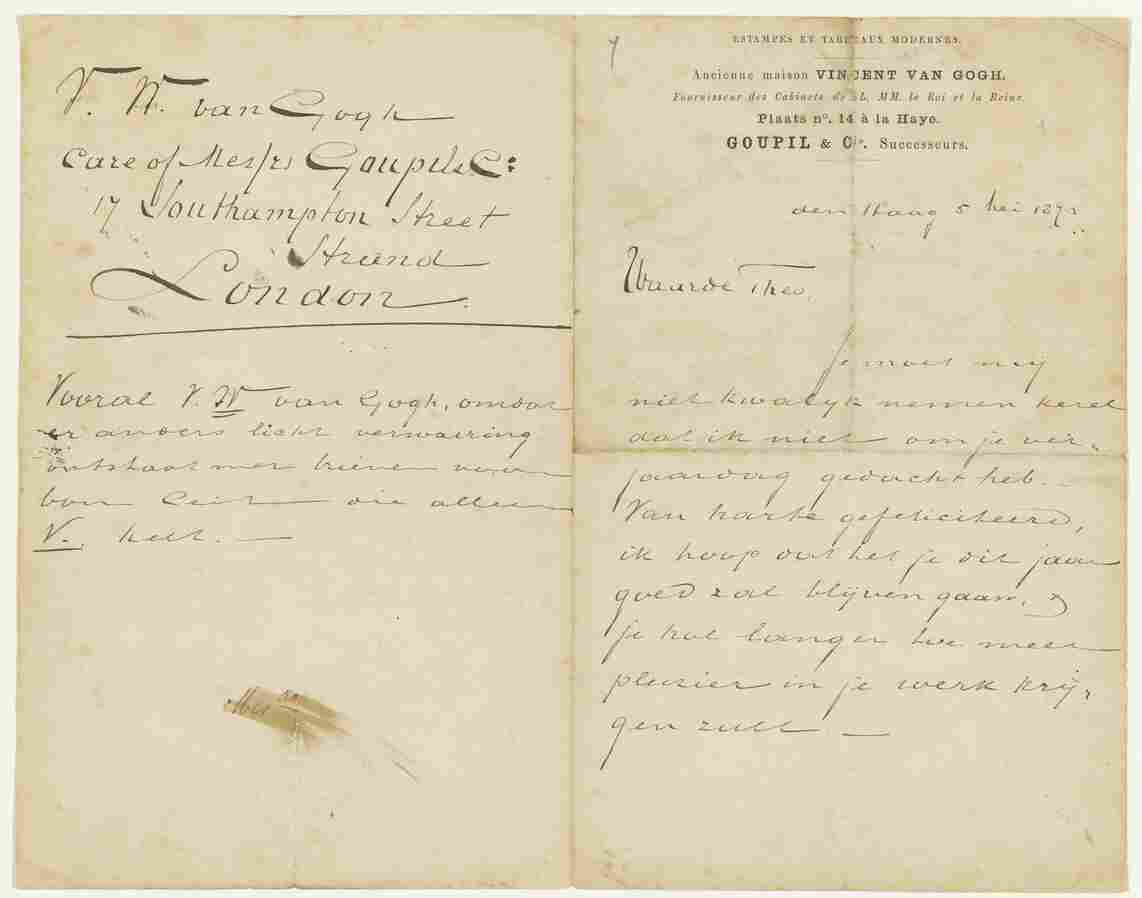 V. W. van Gogh
care of Messrs Goupil & Co:
17 Southampton Street
Strand
London.
Vooral V. W van Gogh, omdat
er anders licht verwarring
ontstaat met brieven voor
oom Cent die alleen
V. heet. —
ESTAMPES ET TABLEAUX MODERNES.
Ancienne maison VINCENT VAN GOGH.
Fournisseur des Cabinets de LL. MM. le Roi et la Reine.
Plaats no. 14 à la Haye.
GOUPIL & Cie. Successeurs.
den Haag 5 Mei 1873
Waarde Theo,
Je moet mij
niet kwalijk nemen kerel
dat ik niet om je ver-
jaardag gedacht heb. —
Van harte gefeliciteerd,
ik hoop dat het je dit jaar
goed zal blijven gaan, &
je hoe langer hoe meer
plezier in je werk krij-
gen zult —